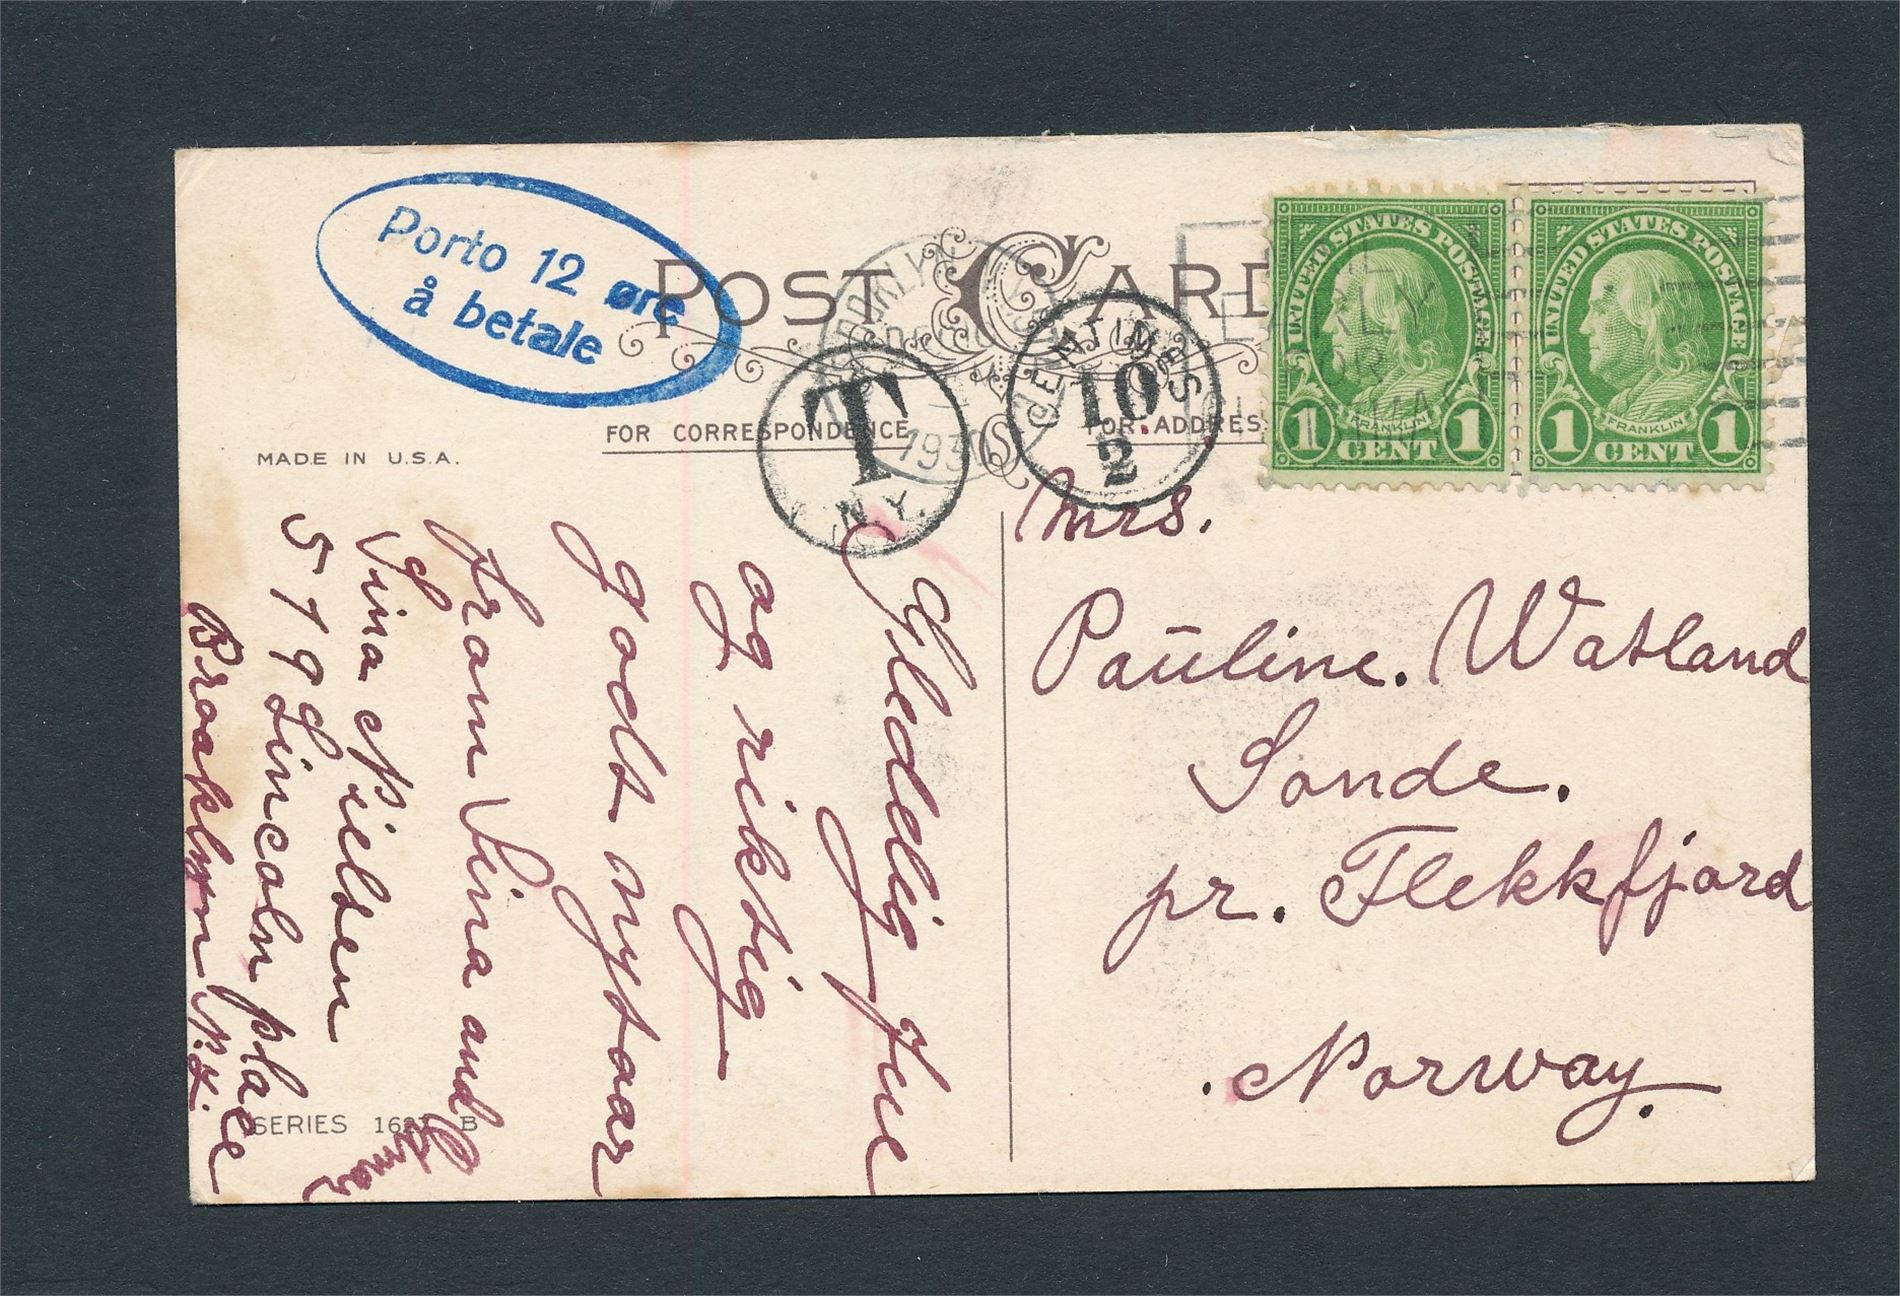 Porto 12 øre
å betale
POST CARD
BROOKLYN
1930
N.Y.
T
N.Y.
CENTIMES
10
2
UNITED STATES POSTAGE
FRANKLIN
1 CENT 1
UNITED STATES POSTAGE
FRANKLIN
1 CENT 1
MADE IN U.S.A.
FOR CORRESPONDENCE
FOR ADDRESS
Mrs.
Pauline. Watland
Sande.
pr. Flekkfjord
Norway.
Gledelig Jul
og riktig
godt nytaar
fram Sina and
Sina Nilsen
519 Lincoln place
Braaklyn N.Y.
SERIES 162 B